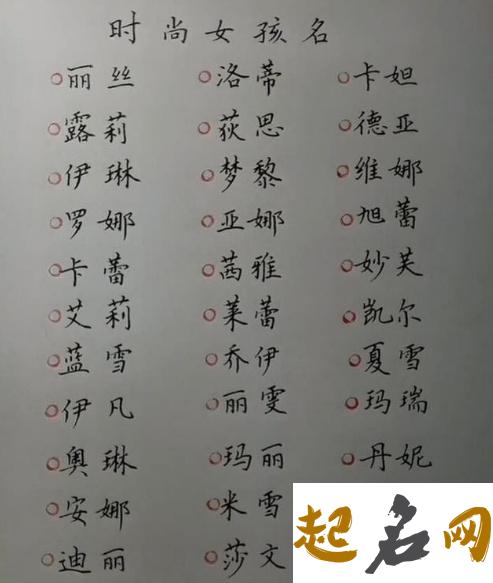 时尚女孩名
丽丝 洛蒂 卡妲
露莉 荻思 德亚
伊琳 梦黎 维娜
罗娜 亚娜 旭蕾
卡蕾 茜雅 妙芙
艾莉 莱蕾 凯尔
蓝雪 乔伊 夏雪
伊凡 丽雯 玛瑞
奥琳 玛丽 丹妮
安娜 米雪
迪丽 莎文
起名网